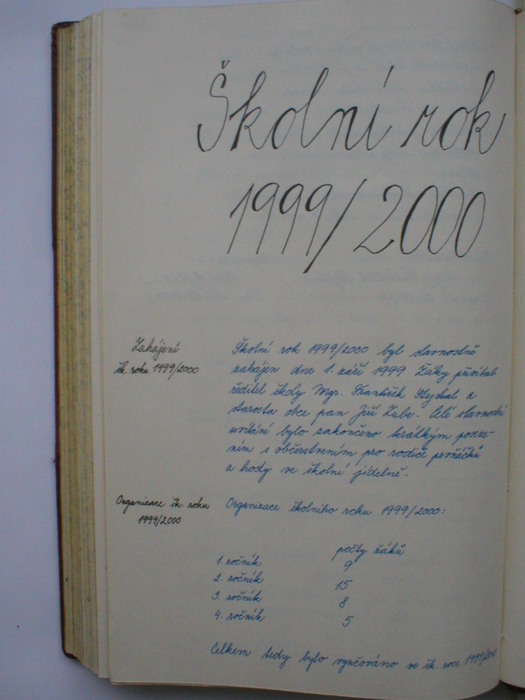 Školní rok
1999/2000
Zahájení
šk. roku 1999/2000
Školní rok 1999/2000 byl slavnostně
zahájen dne 1. září 1999. Žáky přivítal
ředitel školy Mgr. František a
starosta obce pan Jiří. Celé slavnostní
uvítání bylo zakončeno krátkým posze-
ním s občerstvením pro rodiče prvňáčků
a hosty ve školní jídelně.
Organizace šk. roku
1999/2000
Organizace školního roku 1999/2000:
počty žáků
1. ročník 9
2. ročník 15
3. ročník 8
4. ročník 5
Celkem tedy bylo vyučováno ve šk. roce 1999/2000